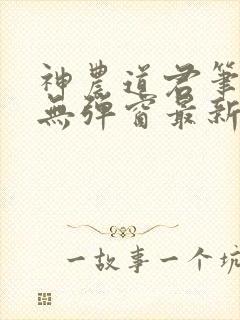 神農道君筆
無彈窗最新
一故事一个坑